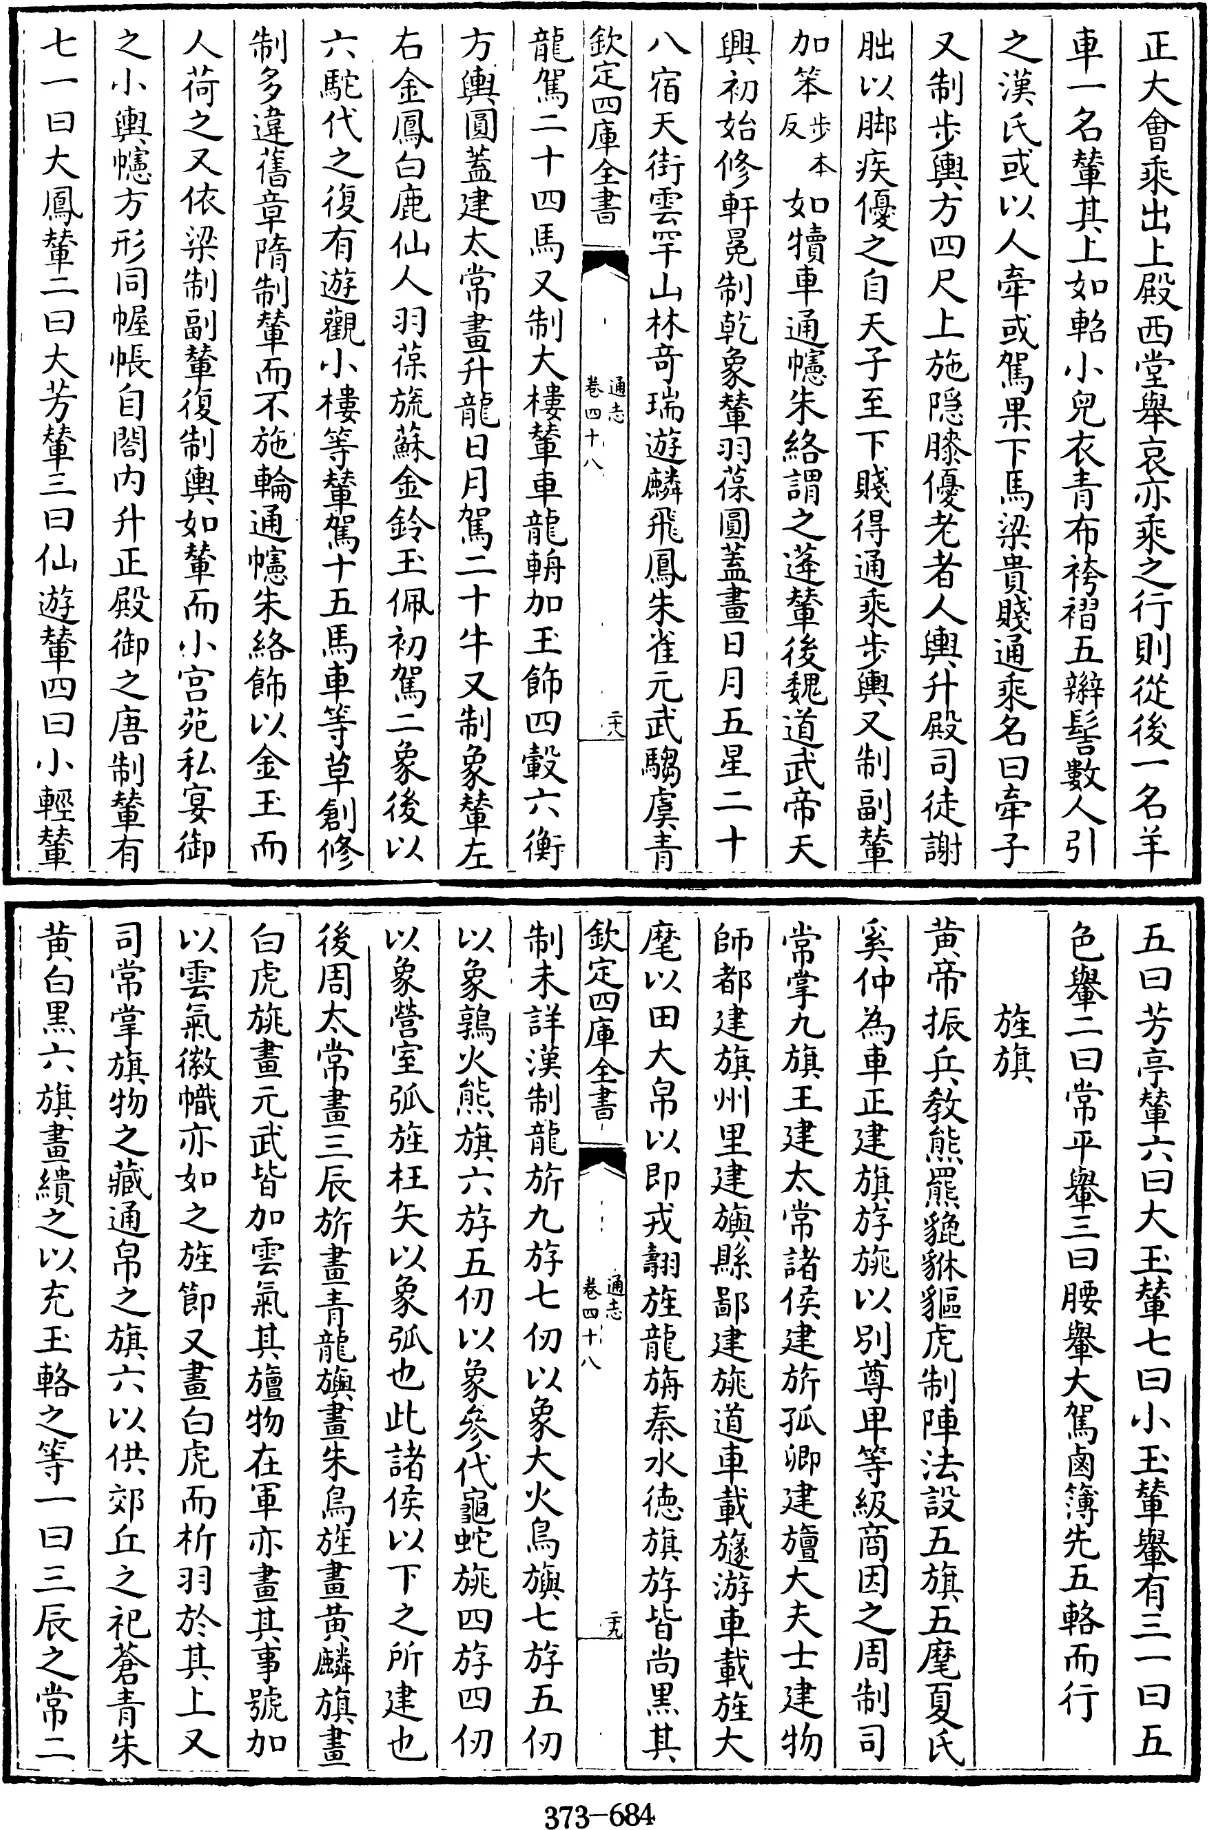 正大會乘出上殿西堂舉哀亦乘之行則從後一名羊
車一名輦其上如軺小兒衣青布袴褶五辮髻數人引
之漢氏或以人牽或駕果下馬梁貴賤通乘名曰牽子
又制步輿方四尺上施隠膝優老者人輿升殿司徒謝
朏以脚疾優之自天子至下賤得通乘步輿又制副輦
加笨步本反如犢車通幰朱絡謂之蓬輦後魏道武帝天
興初始修軒冕制乾象輦羽葆圓蓋畫日月五星二十
八宿天街雲罕山林竒瑞遊麟飛鳳朱雀元武騶虞青
欽定四庫全書
通志
卷四十八
二十八
龍駕二十四馬又制大樓輦車龍輈加玉飾四轂六衡
方輿圓蓋建太常畫升龍日月駕二十牛又制象輦左
右金鳳白鹿仙人羽葆旒蘇金鈴玉佩初駕二象後以
六駝代之復有遊觀小樓等輦駕十五馬車等草創修
制多違舊章隋制輦而不施輪通幰朱絡飾以金玉而
人荷之又依梁制副輦復制輿如輦而小宫苑私宴御
之小輿幰方形同幄帳自閤内升正殿御之唐制輦有
七一曰大鳳輦二曰大芳輦三曰仙遊輦四曰小輕輦
五曰芳亭輦六曰大玉輦七曰小玉輦轝有三一曰五
色轝二曰常平轝三曰腰轝大駕鹵簿先五輅而行
旌旗
黄帝振兵教熊羆貔貅貙虎制陣法設五旗五麾夏氏
奚仲為車正建旗斿旐以别尊卑等級商因之周制司
常掌九旗王建太常諸侯建旂孤卿建旜大夫士建物
師都建旗州里建旟縣鄙建旐道車載旞游車載旌大
麾以田大帛以即戎翿旌龍旃秦水德旗斿皆尚黑其
欽定四庫全書
通志
卷四十八
二十九
制未詳漢制龍旂九斿七仞以象大火鳥旟七斿五仞
以象鶉火熊旗六斿五仞以象參伐龜蛇旐四斿四仞
以象營室弧旌枉矢以象弧也此諸侯以下之所建也
後周太常畫三辰旂畫青龍旟畫朱鳥旌畫黄麟旗畫
白虎旐畫元武皆加雲氣其旜物在軍亦畫其事號加
以雲氣徽幟亦如之旌節又畫白虎而析羽於其上又
司常掌旗物之藏通帛之旗六以供郊丘之祀蒼青朱
黄白黒六旗畫繢之以充玉輅之等一曰三辰之常二
373-684